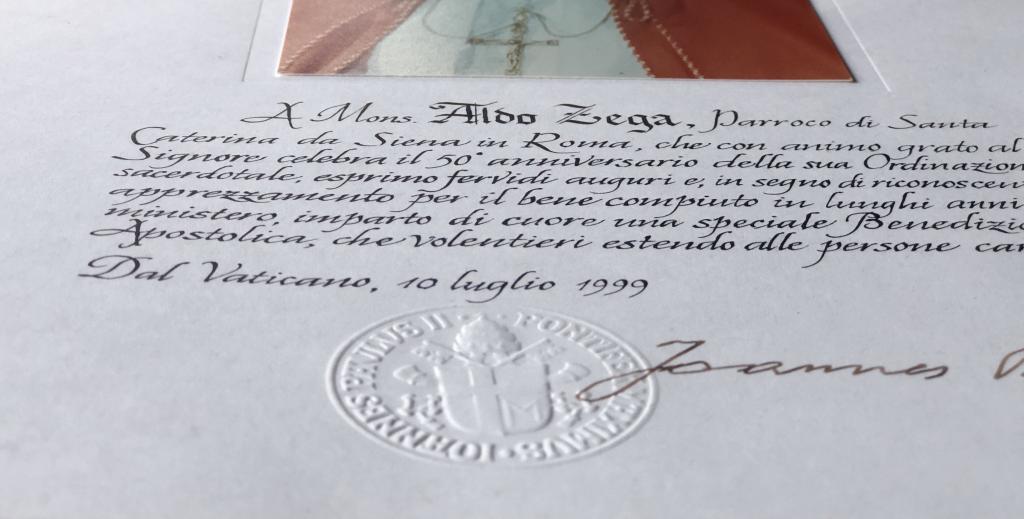 A Mons. Aldo Zega, Parroco di Santa
Caterina da Siena in Roma, che con animo grato al
Signore celebra il 50° anniversario della sua Ordinazion
sacerdotale, esprimo fervidi auguri e, in segno di riconoscen
apprezzamento per il bene compiuto in lunghi anni
ministero, imparto di cuore una speciale Benedizio
Apostolica, che volentieri estendo alle persone car
Dal Vaticano, 10 luglio 1999
IOANNES PAVLVS II • PONTIFEX MAXIMVS
Joannes